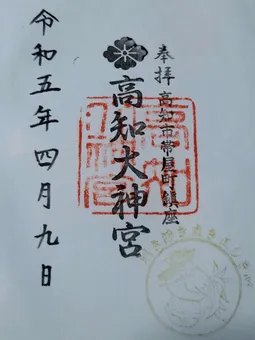 奉拝
高知市帯屋町鎮座
高知大神宮
令和五年四月九日